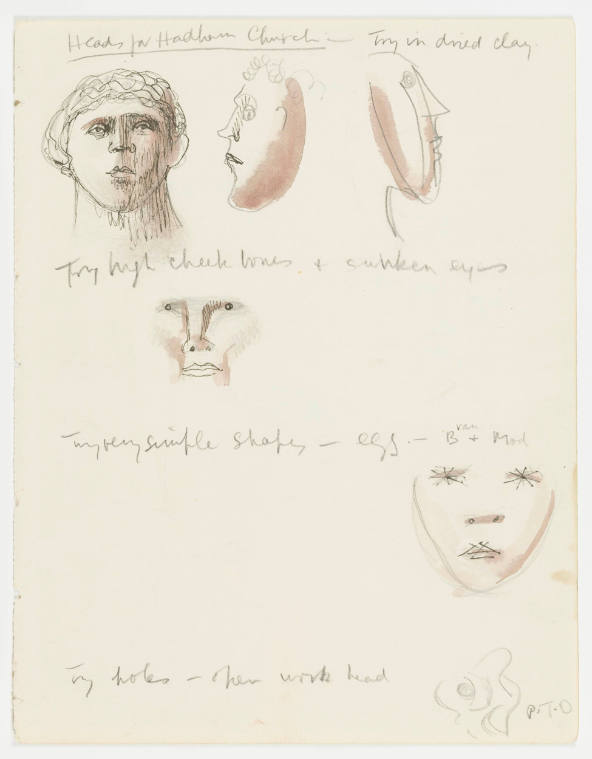 Heads for Hadham Church — Try in dried clay.
Try high cheek bones + sunken eyes
Try very simple shapes — egg. — Bran + Mod
Try holes — open work head
P.T.O